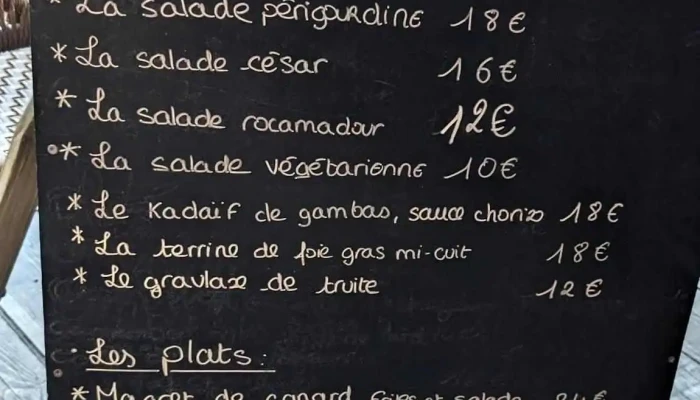 * La salade périgourdine 18€
* La salade césar 16€
* La salade rocamadour 12€
* La salade végétarienne 10€
* Le Kadaïf de gambas, sauce chorizo 18€
* La terrine de foie gras mi-cuit 18€
* Le gravlaxe de truite 12€
Les plats:
* Magret de canard frites et salade 24€